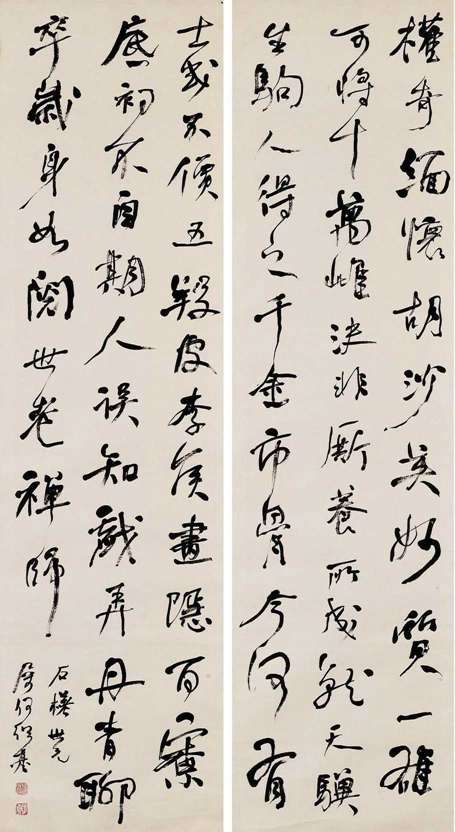 權奇緬懷胡沙英妙質一雄
可將十萬雌決非廝養所成就天驥
生駒人得之千金市骨今何有
士或不價五羖皮李侯畫隱百寮
底初不自期人誤知戲弄丹青聊
卒歲身如閱世老禪師
石 世兄
屬何紹基